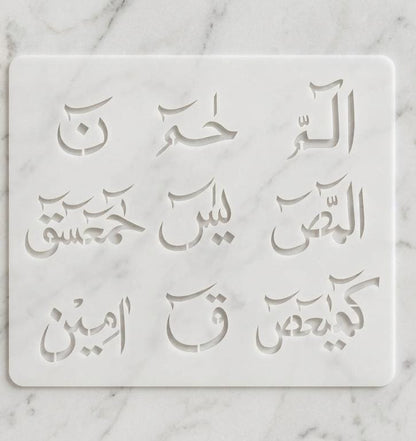 الٓـمّٓ حٰمٓ نٓ
الٓمّٓصٓ يٰسٓ حٰمٓعٓسٓقٓ
كٓهٰيٰعٓصٓ قٓ اٰمِيْن